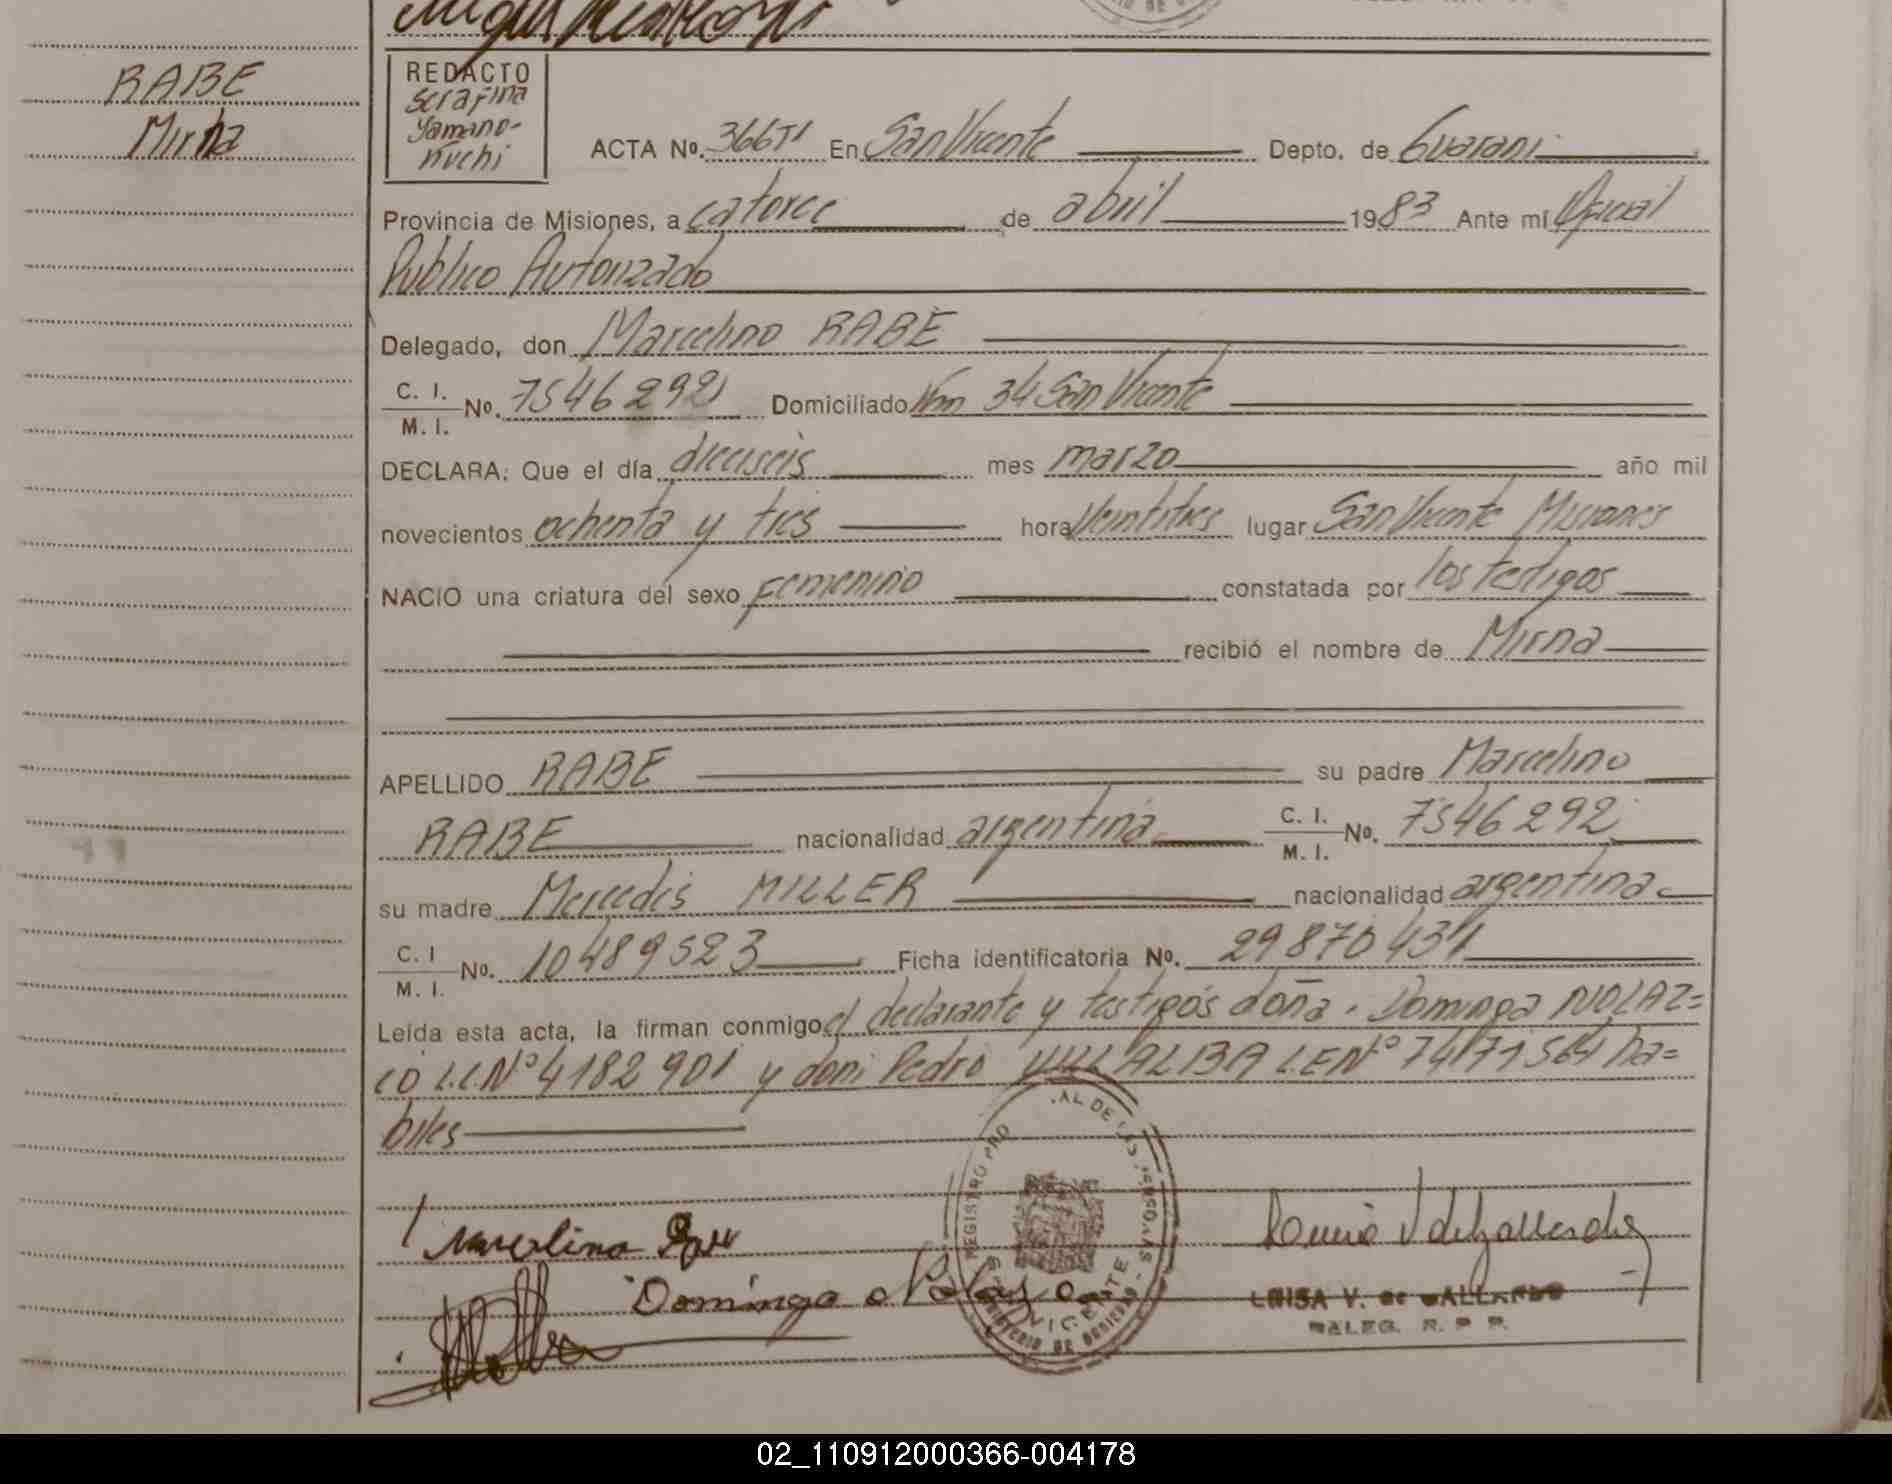 RABE
Mirna
REDACTO
Serafina
Yamano-
Kuchi
ACTA No. 366TI En San Vicente Depto. de Guarani
Provincia de Misiones, a catorce de abril 1983 Ante mí Oficial
Publico Autorizado
Delegado, don Marcelino RABE
C. I.
M. I. No. 7546292 Domiciliado Km 34 San Vicente
DECLARA: Que el día dieciseis mes marzo año mil
novecientos ochenta y tres hora veintitres lugar San Vicente Misiones
NACIO una criatura del sexo Femenino constatada por los testigos
recibió el nombre de Mirna
APELLIDO RABE su padre Marcelino
RABE nacionalidad argentina C. I.
M. I. No. 7546292
su madre Mercedes MILLER nacionalidad argentina
C. I
M. I. No. 10489523 Ficha identificatoria No. 29870431
Leída esta acta, la firman conmigo el declarante y testigos doña. Dominga NOLAZ=
CO L.C.Nº 4182901 y don Pedro VILLALBA L.E Nº 7471564 ha=
biles
Marcelino
Dominga Nolasco
SAN VICENTE
LUISA V. de GALLARDO
DELEG. R. P. P.
02_110912000366-004178